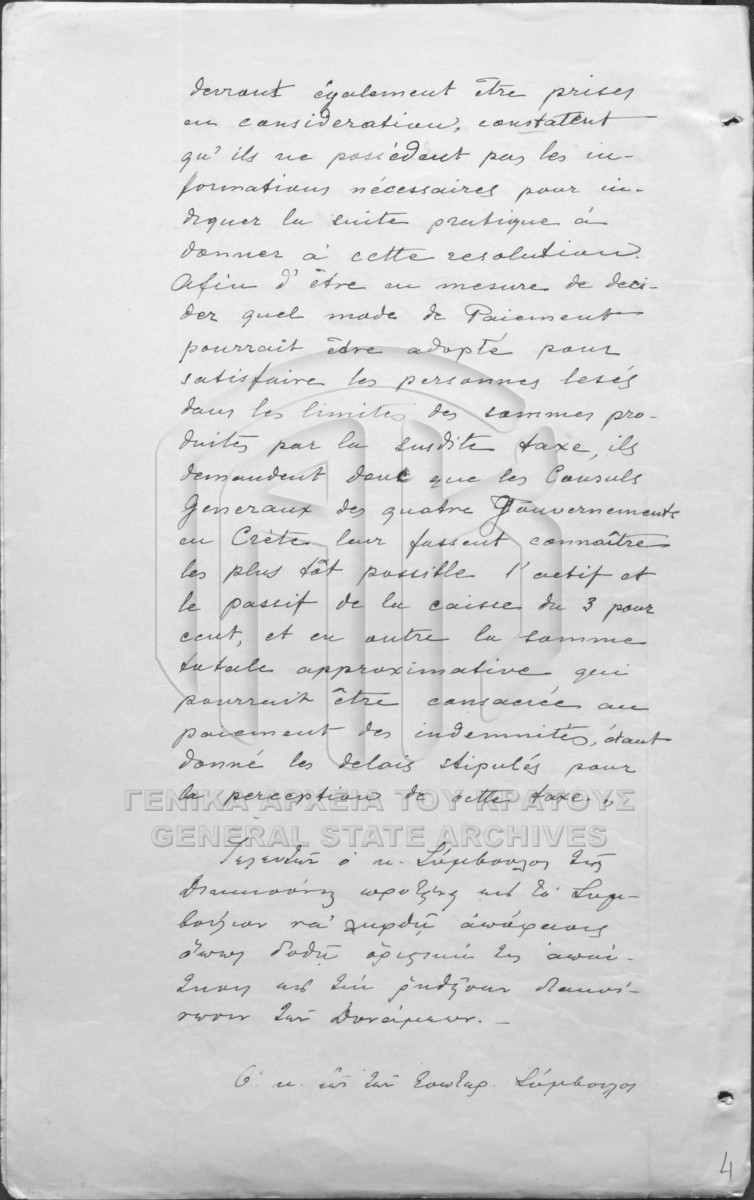 devront également être prises
en consideration, constatent
qu'ils ne possèdent pas les in-
formations nécessaires pour in-
diquer la suite pratique à
donner à cette resolution.
Afin d'être en mesure de deci-
der quel mode de Paiement
pourrait être adopté pour
satisfaire les personnes lesés
dans les limites des sommes pro-
duites par la susdite taxe, ils
demandent donc que les Consuls
Generaux des quatre Gouvernements
en Crète leur fassent connaître
les plus tôt possible l'actif et
le passif de la caisse du 3 pour
cent, et en outre la somme
totale approximative qui
pourrait être consacrée au
paiement des indemnités, étant
donné les delais stipulés pour
la perception de cette taxe.„
ΓΕΝΙΚΑ ΑΡΧΕΙΑ ΤΟΥ ΚΡΑΤΟΥΣ
GENERAL STATE ARCHIVES
Τελευτῶν ὁ κ. Σύμβουλος τῆς
Δικαιοσύνης προτείνει εἰς τὸ Συμ-
βούλιον νὰ ληφθῇ ἀπόφασις
ὅπως δοθῇ ὁριστική τις ἀπάν-
τησις εἰς τὴν ῥηθεῖσαν διακοί-
νωσιν τῶν Δυνάμεων. –
Ὁ κ. ἐπὶ τῶν Ἐσωτερ. Σύμβουλος
4